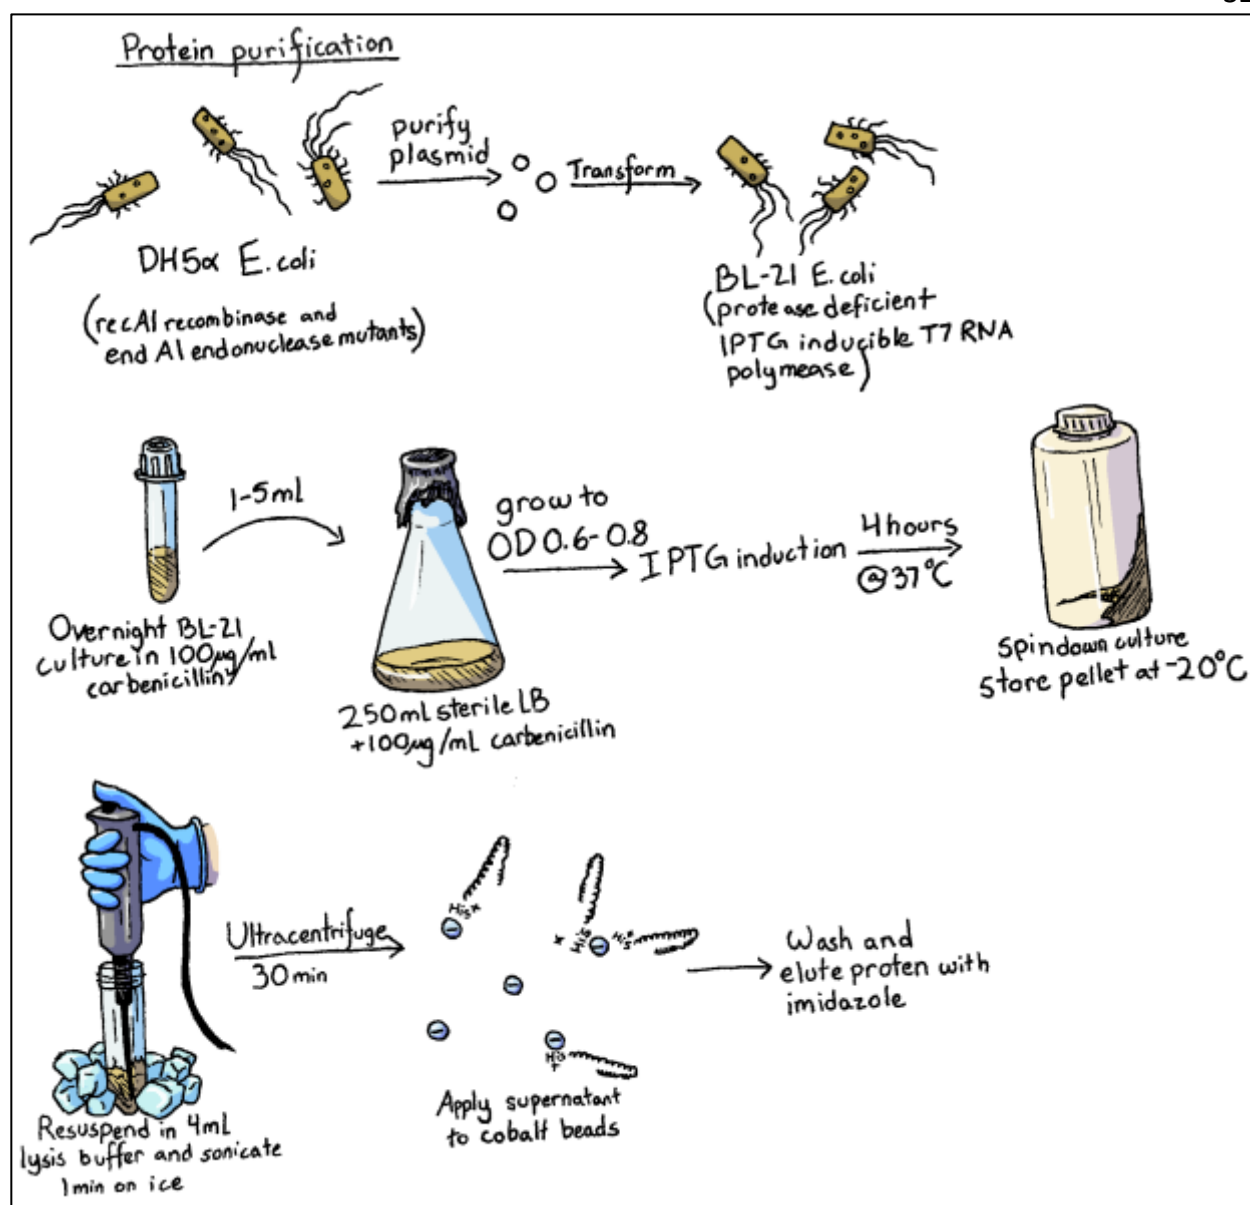 Protein purification
purify
plasmid
Transform
DH5α E.coli
(recA1 recombinase and
end A1 endonuclease mutants)
BL-21 E.coli
(protease deficient
IPTG inducible T7 RNA
polymease)
1-5ml
grow to
OD 0.6-0.8
IPTG induction
4 hours
@37°C
Overnight BL-21
culture in 100µg/ml
carbenicillin
250mL sterile LB
+100µg/mL carbenicillin
Spindown culture
Store pellet at -20°C
Ultracentrifuge
30min
His+
His
+
His+
His
+
Wash and
elute proten with
imidazole
Resuspend in 4mL
lysis buffer and sonicate
1min on ice
Apply supernatant
to cobalt beads